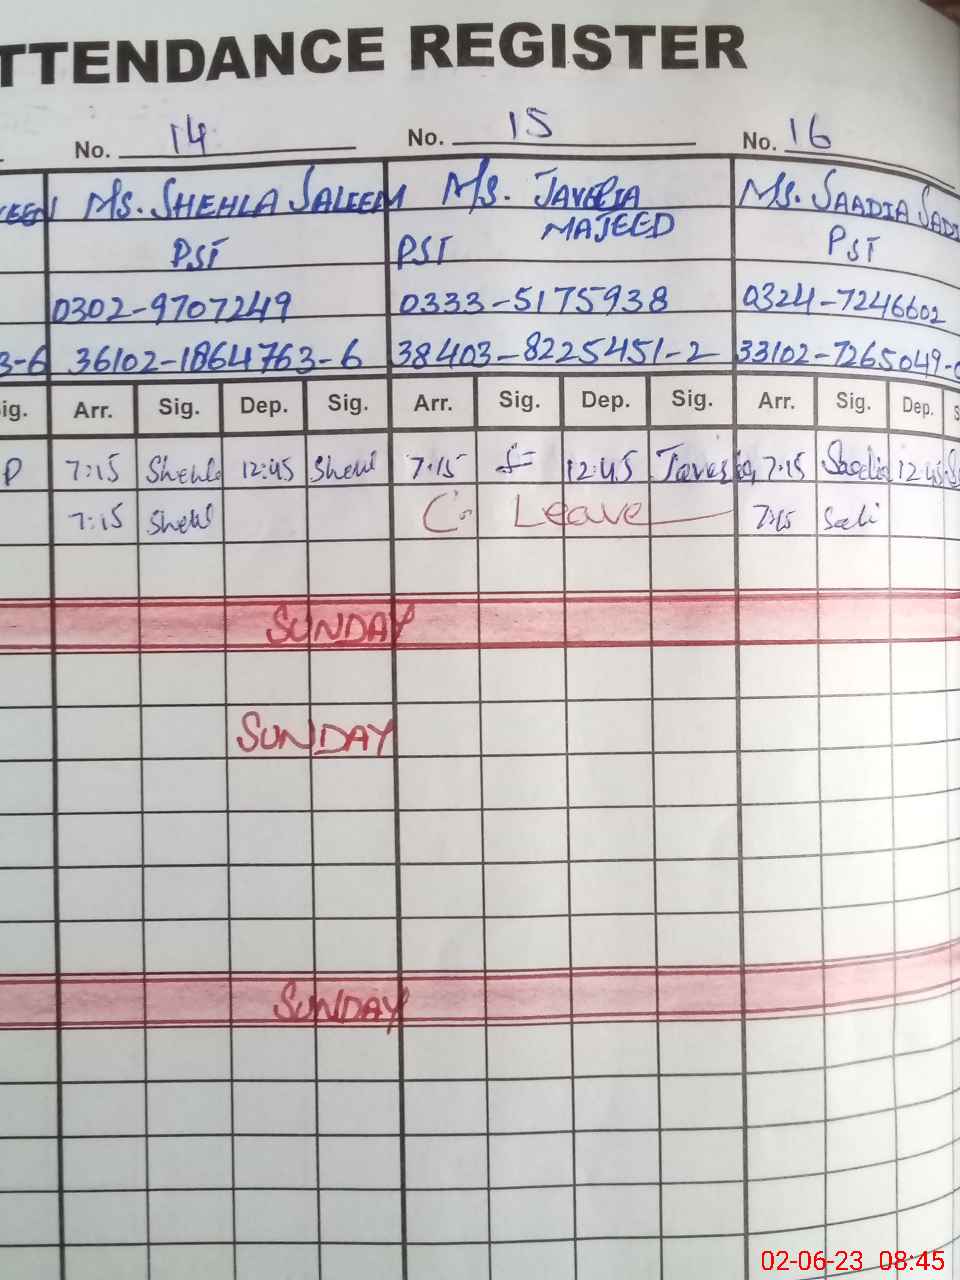 TTENDANCE REGISTER
No. 14 No. 15 No. 16
KEEN Ms. SHEHLA SALEEM Ms. JAVERIA MAJEED Ms. SAADIA SADI
PST PST PST
0302-9707249 0333-5175938 0324-7246602
3-6 36102-1864763-6 38403-8225451-2 33102-7265049-
ig. Arr. Sig. Dep. Sig. Arr. Sig. Dep. Sig. Arr. Sig. Dep. S
7:15 Shehla 12:45 Shehl 7:15 12:45 Javeria 7:15 Saadia 12:45
7:15 Shehl C. Leave 7:15 Sadi
SUNDAY
SUNDAY
SUNDAY
02-06-23 08:45